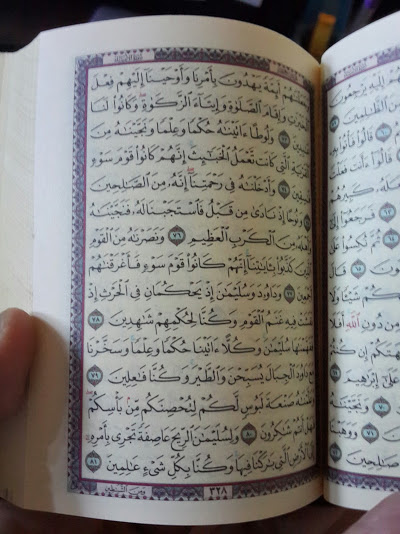 وَجَعَلْنَٰهُمْ أَئِمَّةً يَهْدُونَ بِأَمْرِنَا وَأَوْحَيْنَآ إِلَيْهِمْ فِعْلَ
ٱلْخَيْرَٰتِ وَإِقَامَ ٱلصَّلَوٰةِ وَإِيتَآءَ ٱلزَّكَوٰةِ ۖ وَكَانُوا۟ لَنَا
عَٰبِدِينَ ٧٣ وَلُوطًا ءَاتَيْنَٰهُ حُكْمًا وَعِلْمًا وَنَجَّيْنَٰهُ مِنَ
ٱلْقَرْيَةِ ٱلَّتِى كَانَت تَّعْمَلُ ٱلْخَبَٰٓئِثَ ۗ إِنَّهُمْ كَانُوا۟ قَوْمَ سَوْءٍ
فَٰسِقِينَ ٧٤ وَأَدْخَلْنَٰهُ فِى رَحْمَتِنَآ ۖ إِنَّهُۥ مِنَ ٱلصَّٰلِحِينَ
٧٥ وَنُوحًا إِذْ نَادَىٰ مِن قَبْلُ فَٱسْتَجَبْنَا لَهُۥ فَنَجَّيْنَٰهُ
وَأَهْلَهُۥ مِنَ ٱلْكَرْبِ ٱلْعَظِيمِ ٧٦ وَنَصَرْنَٰهُ مِنَ ٱلْقَوْمِ
ٱلَّذِينَ كَذَّبُوا۟ بِـَٔايَٰتِنَآ ۚ إِنَّهُمْ كَانُوا۟ قَوْمَ سَوْءٍ فَأَغْرَقْنَٰهُمْ
أَجْمَعِينَ ٧٧ وَدَاوُۥدَ وَسُلَيْمَٰنَ إِذْ يَحْكُمَانِ فِى ٱلْحَرْثِ إِذْ
نَفَشَتْ فِيهِ غَنَمُ ٱلْقَوْمِ وَكُنَّا لِحُكْمِهِمْ شَٰهِدِينَ ٧٨
فَفَهَّمْنَٰهَا سُلَيْمَٰنَ ۚ وَكُلًّا ءَاتَيْنَا حُكْمًا وَعِلْمًا ۚ وَسَخَّرْنَا
مَعَ دَاوُۥدَ ٱلْجِبَالَ يُسَبِّحْنَ وَٱلطَّيْرَ ۚ وَكُنَّا فَٰعِلِينَ ٧٩
وَعَلَّمْنَٰهُ صَنْعَةَ لَبُوسٍ لَّكُمْ لِتُحْصِنَكُم مِّنۢ بَأْسِكُمْ ۖ
فَهَلْ أَنتُمْ شَٰكِرُونَ ٨٠ وَلِسُلَيْمَٰنَ ٱلرِّيحَ عَاصِفَةً تَجْرِى بِأَمْرِهِۦٓ
إِلَى ٱلْأَرْضِ ٱلَّتِى بَٰرَكْنَا فِيهَا ۚ وَكُنَّا بِكُلِّ شَىْءٍ عَٰلِمِينَ ٨١
٣٢٨
إِلَيْهِ يَرْجِعُونَ
ٱلظَّٰلِمِينَ
قَالُوا۟ فَأْتُوا۟
قَالُوٓا۟ ءَأَنتَ فَعَلْتَ
كَبِيرُهُمْ
٦٣ فَرَجَعُوٓا۟ إِلَىٰٓ
ثُمَّ نُكِسُوا۟ عَلَىٰ
٦٥ قَالَ
شَيْـًٔا وَلَا
مِن دُونِ ٱللَّهِ ۖ أَفَلَا
إِن كُنتُمْ
عَلَىٰٓ إِبْرَٰهِيمَ
٧٠ وَنَجَّيْنَٰهُ
٧١ وَوَهَبْنَا
صَٰلِحِينَ